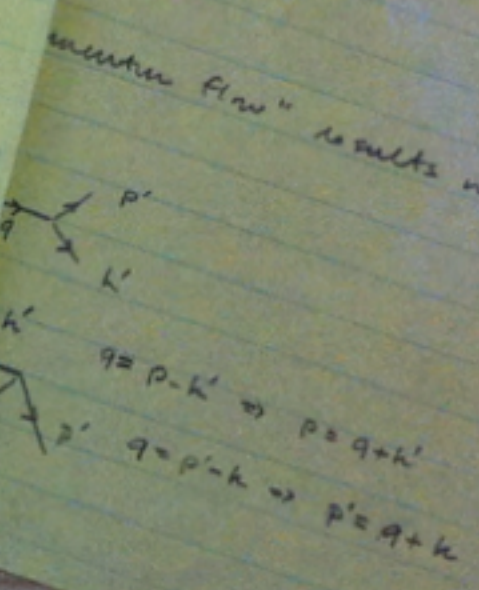 flow" results
p'
q
k'
k'
q = p - k' ⇒ p = q + k'
p' q = p' - k ⇒ p' = q + k